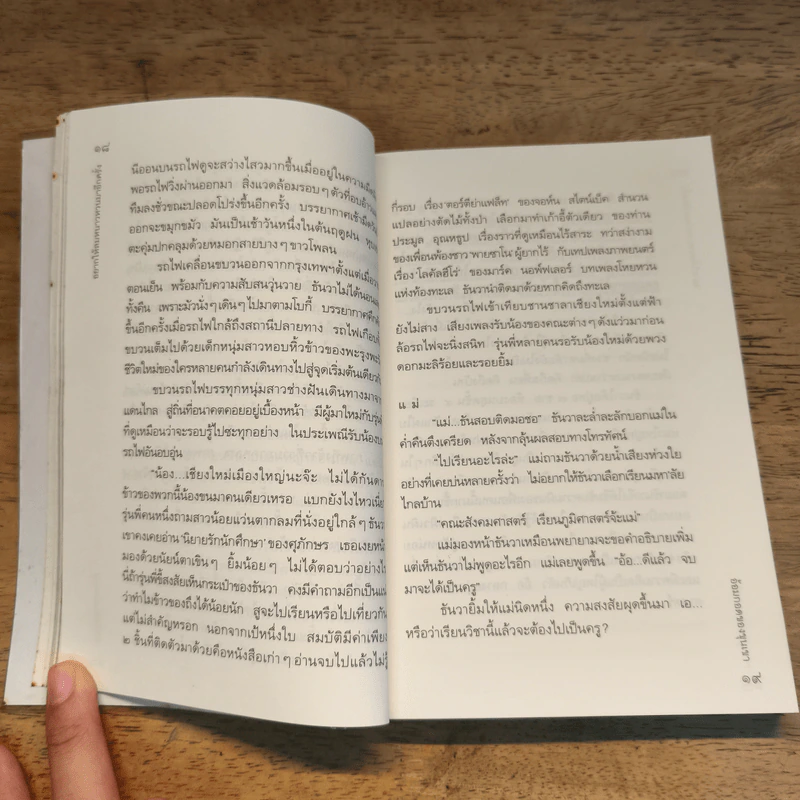 ๑๘
อยากให้ลมหนาวหวนมาอีกครั้ง
นีออนบนรถไฟดูจะสว่างไสวมากขึ้นเมื่ออยู่ในความมืด
พอรถไฟวิ่งผ่านออกมา สิ่งแวดล้อมรอบๆ ตัวที่อบอ้าว
ทึมลงชั่วขณะปลอดโปร่งขึ้นอีกครั้ง บรรยากาศเช้ามืด
ออกจะขมุกขมัว มันเป็นเช้าวันหนึ่งในต้นฤดูฝน
ตะคุ่มปกคลุมด้วยหมอกสายบางๆ ขาวโพลน
รถไฟเคลื่อนขบวนออกจากกรุงเทพฯตั้งแต่เมื่อ
ตอนเย็น พร้อมกับความสับสนวุ่นวาย ธันวาไม่ได้นอน
ทั้งคืน เพราะมัวนั่งๆ เดินๆ ไปมาตามโบกี้ บรรยากาศ
ขึ้นอีกครั้งเมื่อรถไฟใกล้ถึงสถานีปลายทาง รถไฟเกือบ
ขบวนเต็มไปด้วยเด็กหนุ่มสาวหอบหิ้วข้าวของพะรุงพะรัง
ชีวิตใหม่ของใครหลายคนกำลังเดินทางไปสู่จุดเริ่มต้นเดียวกัน
ขบวนรถไฟบรรทุกหนุ่มสาวช่างฝันเดินทางมาจาก
แดนไกล สู่ถิ่นที่อนาคตคอยอยู่เบื้องหน้า มีผู้มาใหม่กับรุ่น
ที่ดูเหมือนว่าจะรอบรู้ไปซะทุกอย่าง ในประเพณีรับน้อง
รถไฟอันอบอุ่น
“น้อง...เชียงใหม่เมืองใหญ่นะจ๊ะ ไม่ได้กันดาร
ข้าวของพวกนี้น้องขนมาคนเดียวเหรอ แบกยังไงไหวเนี่ย
รุ่นพี่คนหนึ่งถามสาวน้อยแว่นตากลมที่นั่งอยู่ใกล้ๆ ธันวา
เขาคงเคยอ่าน ‘นิยายรักนักศึกษา’ ของศุภักษร เธอเงยหน้า
มองด้วยนัยน์ตาเขินๆ ยิ้มน้อยๆ ไม่ได้ตอบว่าอย่างไร
นี่ถ้ารุ่นพี่ขี้สงสัยเห็นกระเป๋าของธันวา คงมีคำถามอีกเป็นแน่
ว่าทำไมข้าวของถึงได้น้อยนัก สูจะไปเรียนหรือไปเที่ยวกัน
แต่ไม่สำคัญหรอก นอกจากเป้หนึ่งใบ สมบัติมีค่าเพียง
๒ ชิ้นที่ติดตัวมาด้วยคือหนังสือเก่าๆ อ่านจบไปแล้วไม่รู้
กี่รอบ เรื่อง‘ตอร์ติย่าแฟล็ท’ ของจอห์น สไตน์เบ็ค สำนวน
แปลอย่างตัดไม้ทั้งป่า เลือกมาทำเก้าอี้ตัวเดียว ของท่าน
ประมูล อุณหธูป เรื่องราวที่ดูเหมือนไร้สาระ ทว่าสง่างาม
ของเพื่อนพ้องชาว‘พายซาโน’ผู้ยากไร้ กับเทปเพลงภาพยนตร์
เรื่อง‘โลคัลฮีโร่’ ของมาร์ค นอพ์ฟเลอร์ บทเพลงโหยหวน
แห่งท้องทะเล ธันวานำติดมาด้วยหากคิดถึงทะเล
ขบวนรถไฟเข้าเทียบชานชาลาเชียงใหม่ตั้งแต่ฟ้า
ยังไม่สาง เสียงเพลงรับน้องของคณะต่างๆ ดังแว่วมาก่อน
ล้อรถไฟจะนิ่งสนิท รุ่นพี่หลายคนรอรับน้องใหม่ด้วยพวง
ดอกมะลิร้อยและรอยยิ้ม
แ ม่
“แม่...ธันสอบติดมอชอ” ธันวาละล่ำละลักบอกแม่ใน
ค่ำคืนตึงเครียด หลังจากลุ้นผลสอบทางโทรทัศน์
“ไปเรียนอะไรล่ะ” แม่ถามธันวาด้วยน้ำเสียงห่วงใย
อย่างที่เคยบ่นหลายครั้งว่า ไม่อยากให้ธันวาเลือกเรียนมหา’ลัย
ไกลบ้าน
“คณะสังคมศาสตร์ เรียนภูมิศาสตร์จ้ะแม่”
แม่มองหน้าธันวาเหมือนพยายามจะขอคำอธิบายเพิ่ม
แต่เห็นธันวาไม่พูดอะไรอีก แม่เลยพูดขึ้น “อ้อ...ดีแล้ว จบ
มาจะได้เป็นครู”
ธันวายิ้มให้แม่นิดหนึ่ง ความสงสัยผุดขึ้นมา เอ...
หรือว่าเรียนวิชานี้แล้วจะต้องไปเป็นครู?
อ้อมกอดของขุนเขา
๑๙